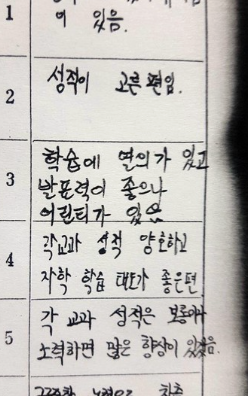 1
이 있음.
2
성적이 고른 편임.
3
학습에 열의가 있고
발표력이 좋으나
어린티가 있음
4
각교과 성적 양호하고
자학 학습 태도가 좋은편
5
각 교과 성적은 보통이나
노력하면 많은 향상이 있겠음.